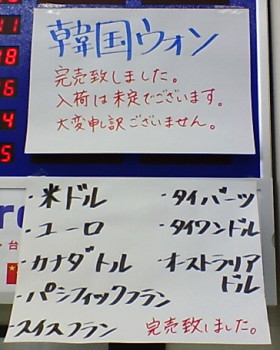 韓国ウォン
完売致しました。
入荷は未定でございます。
大変申し訳ございません。
・米ドル
・ユーロ
・カナダドル
・パシフィックフラン
・スイスフラン
・タイバーツ
・タイワンドル
・オーストラリア
ドル
完売致しました。